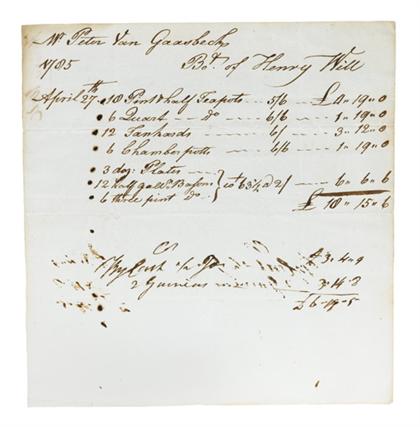 Mr Peter Van Gaasbeck
1785 Bot. of Henry Will
April 27th 18 Pint & half Teapots 5/6 £4"19"0
6 Quart do 6/6 1"19"0
12 Tankards 6/ 3"12"0
6 Chamberpotts 6/6 1"19"0
3 doz: Plates
12 half gall. Basons wt 63¼ @ 2/ 6"6"6
6 three pint Do.
£18"15"6
By Cash £3"4"9
2 Guineas 3"14"8
£6"19"5